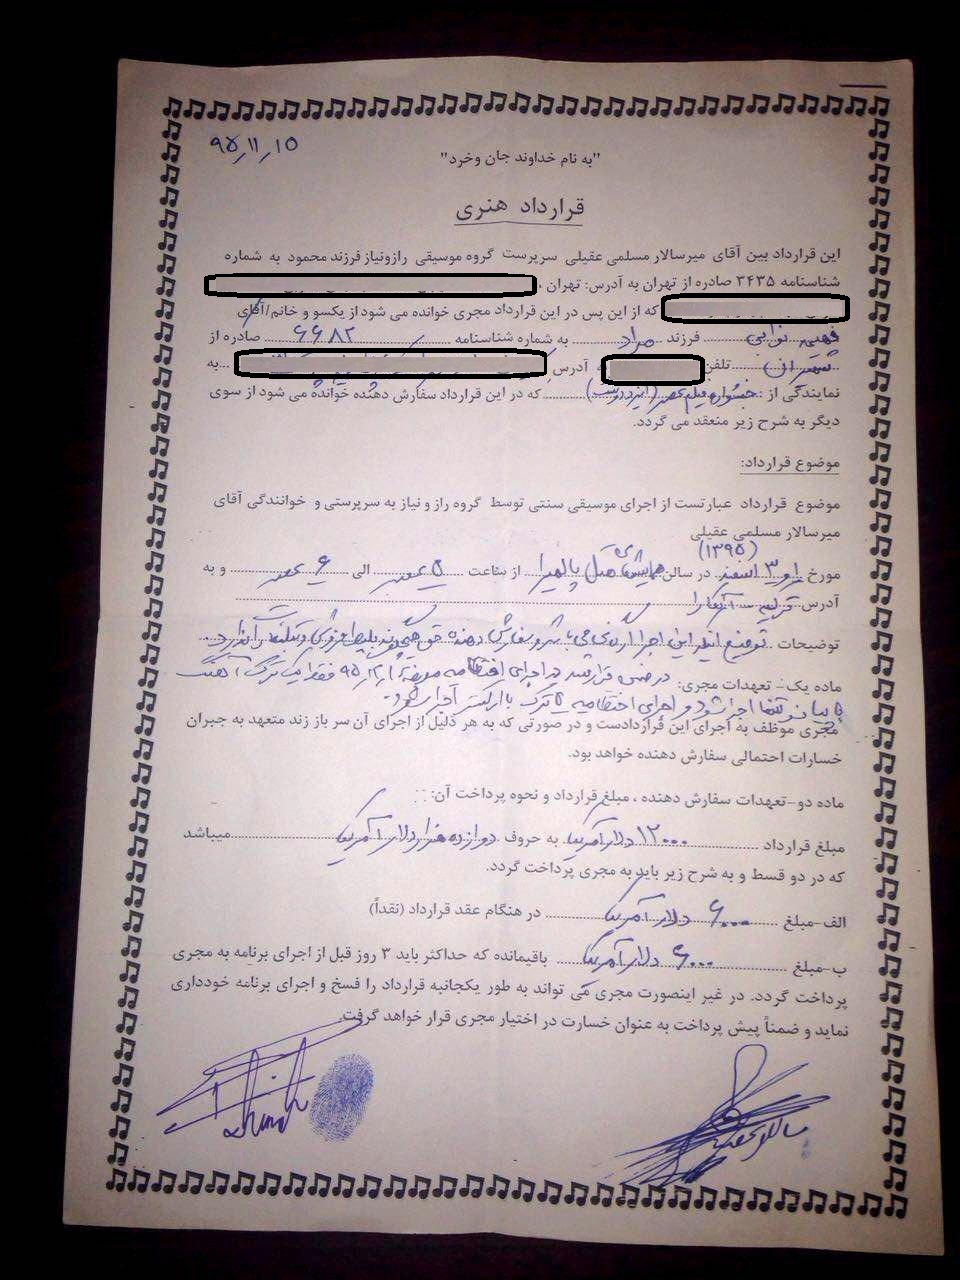 ۹۵/۱۱/۱۵
"به نام خداوند جان وخرد"
قرارداد هنری
این قرارداد بین آقای میرسالار مسلمی عقیلی سرپرست گروه موسیقی رازونیاز فرزند محمود به شماره
شناسنامه ۳۴۳۵ صادره از تهران به آدرس: تهران
که از این پس در این قرارداد مجری خوانده می شود از یکسو و خانم/آقای
فهیمه نوایی فرزند مراد به شماره شناسنامه ۶۶۸۲ صادره از
شمیران تلفن آدرس به
نمایندگی از: جشنواره فیلم که در این قرارداد سفارش دهنده خوانده می شود از سوی
دیگر به شرح زیر منعقد می گردد.
موضوع قرارداد:
موضوع قرارداد عبارتست از اجرای موسیقی سنتی توسط گروه راز و نیاز به سرپرستی و خوانندگی آقای
میرسالار مسلمی عقیلی
(۱۳۹۵)
مورخ ۱ و ۳ اسفند در سالن همایش های هتل پالمیرا از ساعت ۵ عصر الی ۶ عصر و به
آدرس ترکیه - آنکارا
توضیحات: توضیح اینکه این اجرا ارگانی می باشد و سفارش دهنده حق هیچگونه بلیط فروشی و تبلیغات را ندارد.
ماده یک- تعهدات مجری: در ضمن قرار شد در اجرای افتتاحیه مورخه ۹۵ فقط یک ترک آهنگ
با پیانو تنها اجرا شود و اجرای اختتامیه ۵ ترک با ارکستر اجرا شود.
مجری موظف به اجرای این قراردادست و در صورتی که به هر دلیل از اجرای آن سر باز زند متعهد به جبران
خسارات احتمالی سفارش دهنده خواهد بود.
ماده دو-تعهدات سفارش دهنده ، مبلغ قرارداد و نحوه پرداخت آن:
مبلغ قرارداد ۱۲۰۰۰ دلار آمریکا به حروف دوازده هزار دلار آمریکا میباشد
که در دو قسط و به شرح زیر باید به مجری پرداخت گردد.
الف-مبلغ ۶۰۰۰ دلار آمریکا در هنگام عقد قرارداد (نقداً)
ب-مبلغ ۶۰۰۰ دلار آمریکا باقیمانده که حداکثر باید ۳ روز قبل از اجرای برنامه به مجری
پرداخت گردد. در غیر اینصورت مجری می تواند به طور یکجانبه قرارداد را فسخ و اجرای برنامه خودداری
نماید و ضمناً پیش پرداخت به عنوان خسارت در اختیار مجری قرار خواهد گرفت.
سالار عقیلی